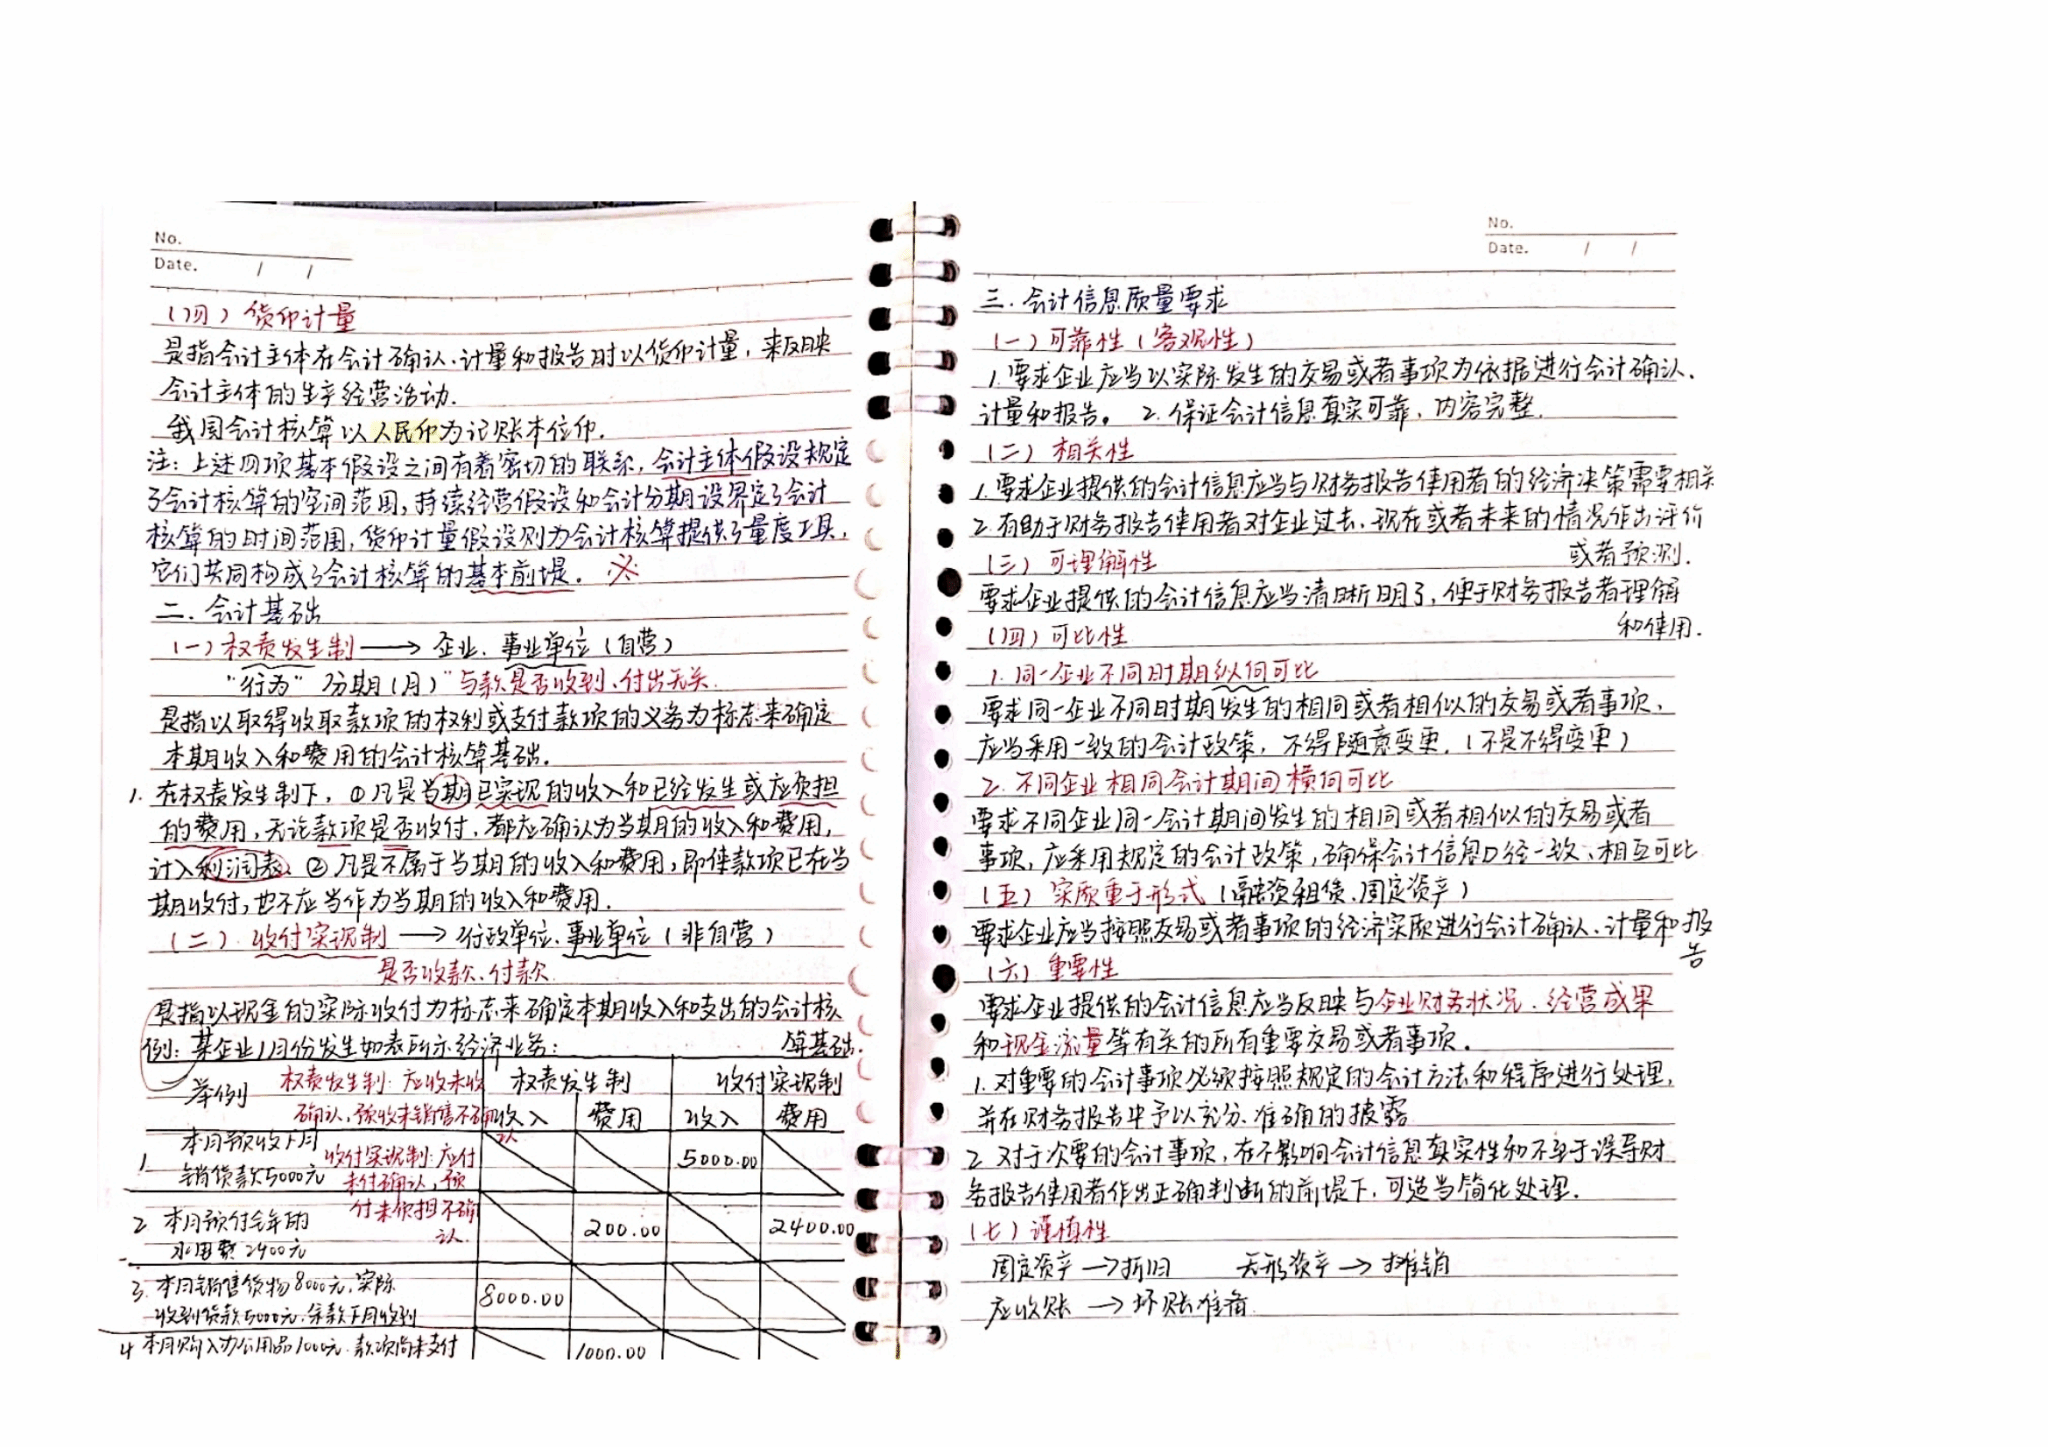 No.
Date. / /
(四) 货币计量
是指会计主体在会计确认、计量和报告时以货币计量，来反映
会计主体的生产经营活动.
我国会计核算以人民币为记账本位币.
注：上述四项基本假设之间有着密切的联系，会计主体假设规定
了会计核算的空间范围，持续经营假设和会计分期设界定了会计
核算的时间范围，货币计量假设则为会计核算提供了量度工具，
它们共同构成了会计核算的基本前提. ※
二. 会计基础
(一) 权责发生制 → 企业、事业单位 (自营)
"行为" 分期 (月) "与款是否收到、付出无关.
是指以取得收取款项的权利或支付款项的义务为标志来确定
本期收入和费用的会计核算基础.
1. 在权责发生制下，①凡是当期已实现的收入和已经发生或应负担
的费用，无论款项是否收付，都应确认为当期的收入和费用，
计入利润表. ②凡是不属于当期的收入和费用，即使款项已在当
期收付，也不应当作为当期的收入和费用.
(二) 收付实现制 → 行政单位、事业单位 (非自营)
是否收款、付款
是指以现金的实际收付为标志来确定本期收入和支出的会计核
算基础.
例：某企业1月份发生如表所示经济业务：
举例 权责发生制 收付实现制
收入 费用 收入 费用
权责发生制：应收未收
确认、预收未销售不确
认
收付实现制：应付
未付确认，预
付未负担不确
认.
1. 本月预收下月
销货款5000元 5000.00
2. 本月预付全年的
水电费2400元 200.00 2400.00
3. 本月销售货物8000元，实际
收到货款5000元，余款下月收到 8000.00
4 本月购入办公用品1000元、款项尚未支付 1000.00
No.
Date. / /
三. 会计信息质量要求
(一) 可靠性 (客观性)
1. 要求企业应当以实际发生的交易或者事项为依据进行会计确认、
计量和报告。 2. 保证会计信息真实可靠，内容完整.
(二) 相关性
1. 要求企业提供的会计信息应当与财务报告使用者的经济决策需要相关
2. 有助于财务报告使用者对企业过去、现在或者未来的情况作出评价
或者预测.
(三) 可理解性
要求企业提供的会计信息应当清晰明了，便于财务报告者理解
和使用.
(四) 可比性
1. 同一企业不同时期纵向可比
要求同一企业不同时期发生的相同或者相似的交易或者事项，
应当采用一致的会计政策，不得随意变更. (不是不得变更)
2. 不同企业相同会计期间横向可比
要求不同企业同一会计期间发生的相同或者相似的交易或者
事项，应采用规定的会计政策，确保会计信息口径一致、相互可比
(五) 实质重于形式 (融资租赁、固定资产)
要求企业应当按照交易或者事项的经济实质进行会计确认、计量和报
告
(六) 重要性
要求企业提供的会计信息应当反映与企业财务状况、经营成果
和现金流量等有关的所有重要交易或者事项。
1. 对重要的会计事项必须按照规定的会计方法和程序进行处理，
并在财务报告中予以充分、准确的披露
2. 对于次要的会计事项，在不影响会计信息真实性和不至于误导财
务报告使用者作出正确判断的前提下，可适当简化处理.
(七) 谨慎性
固定资产 → 折旧 无形资产 → 摊销
应收账 → 坏账准备